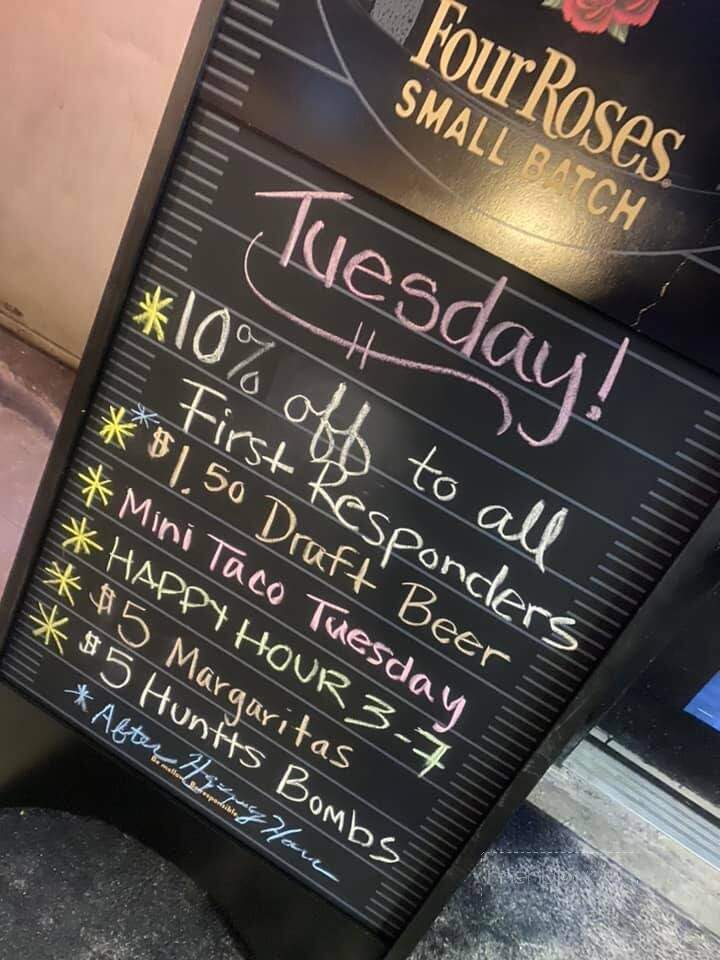 Four Roses
SMALL BATCH
Tuesday!
* 10% off to all
First Responders
* * $1.50 Draft Beer
* Mini Taco Tuesday
* HAPPY HOUR 3-7
* $5 Margaritas
* $5 Huntts Bombs
* After Happy Hour
Be mellow. Be responsible.